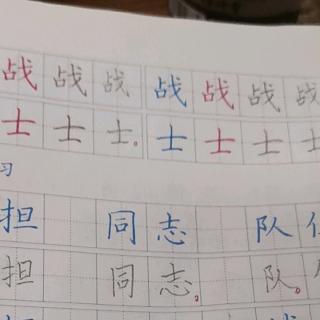 战 战 战 战 战 战 战
士 士 士。 士 士 士 士
习
担 同志 队
担 同志。 队。